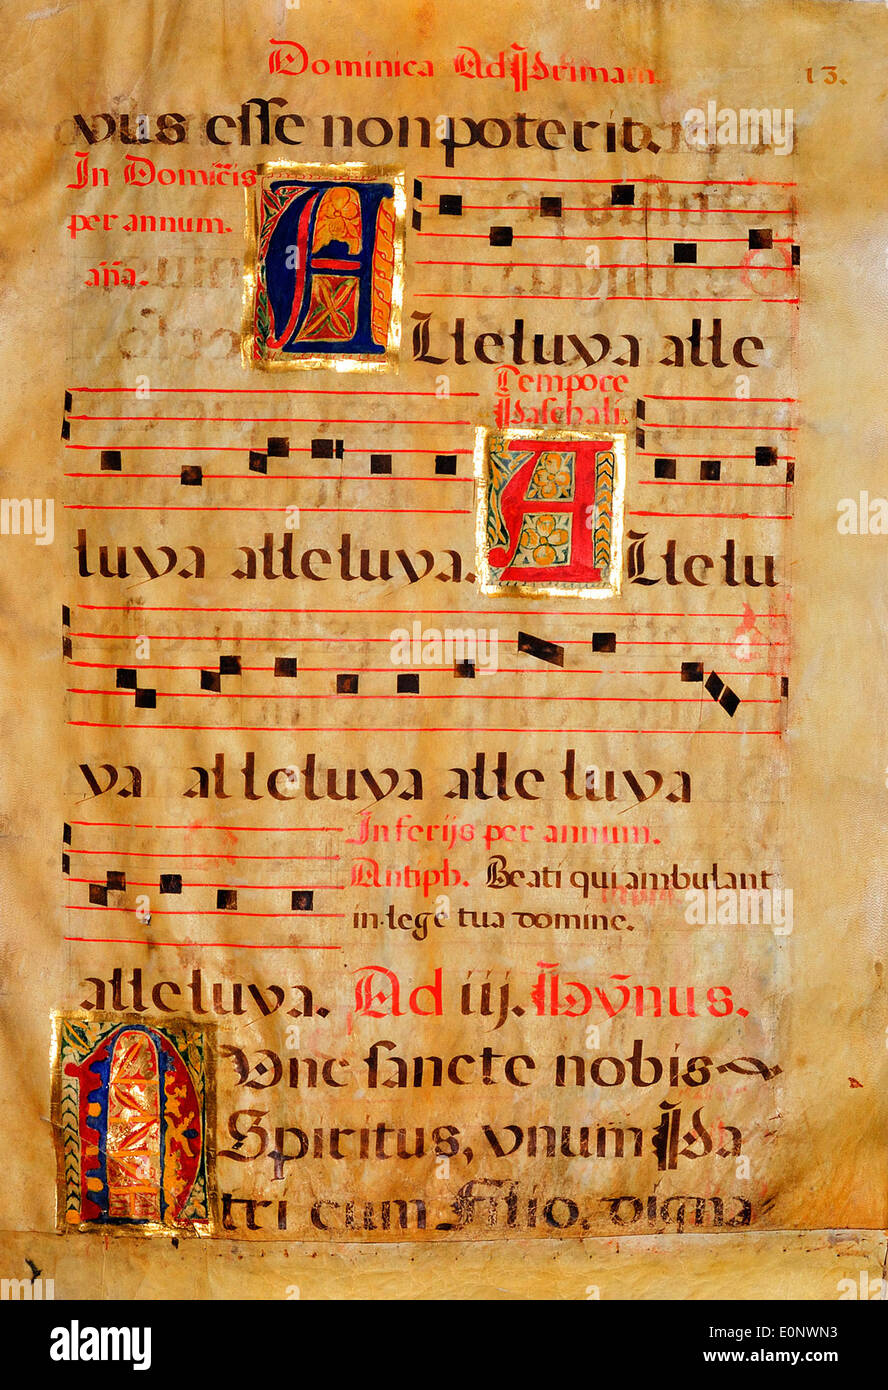 Dominica Ad Primam. 13.
vus esse non poterit.
In Domicis
per annum.
aña.
ALleluya alle
Tempore
Paschali.
luya alleluya. ALlelu
ya alleluya alleluya
In ferijs per annum.
Antiph. Beati qui ambulant
in lege tua domine.
alleluya. Ad iij. Hỹnus.
NUnc sancte nobis
Spiritus, vnum Pa
tri cum Filio, digna
alamy
Image ID: E0NWN3
www.alamy.com